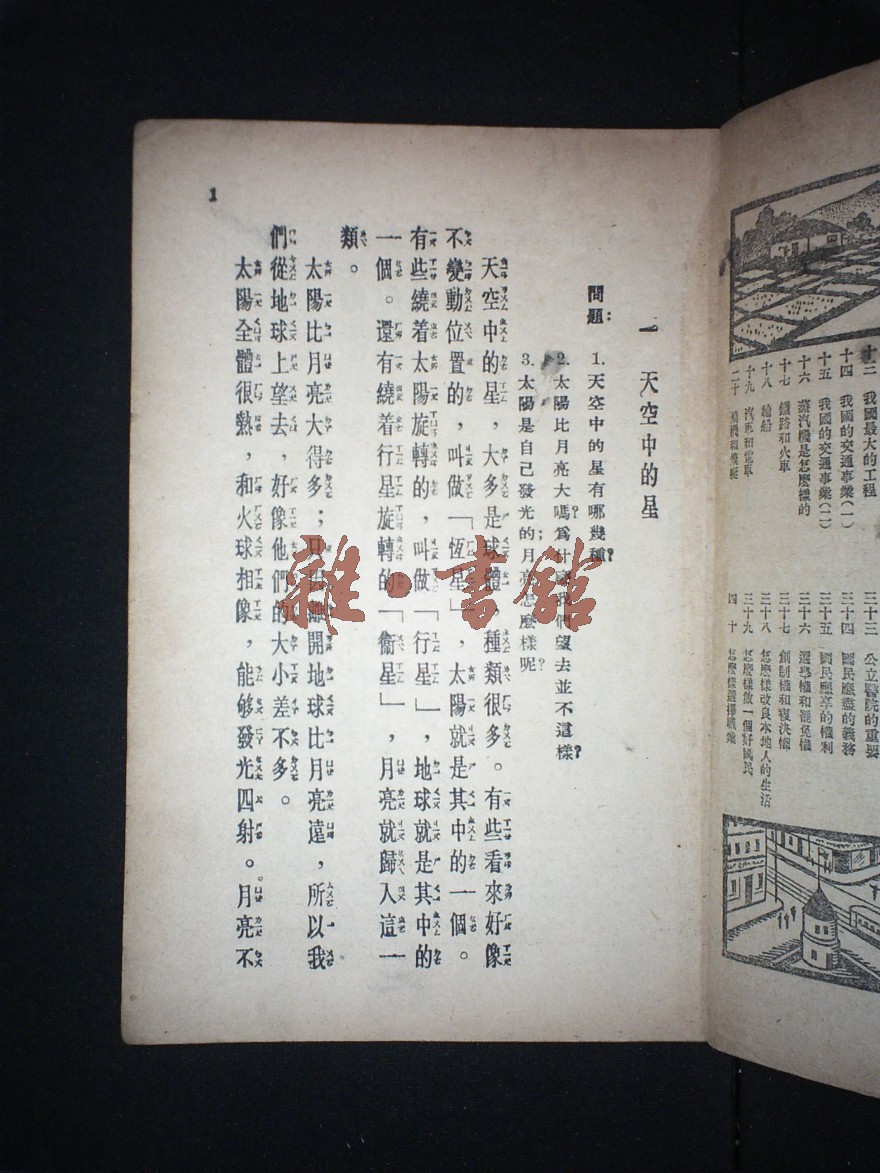 十三 我國最大的工程
十四 我國的交通事業(一)
十五 我國的交通事業(二)
十六 蒸汽機是怎麼樣的
十七 鐵路和火車
十八 輪船
十九 汽車和電車
二十 飛機和飛艇
三十三 公立醫院的重要
三十四 國民應盡的義務
三十五 國民應享的權利
三十六 選舉權和罷免權
三十七 創制權和複決權
三十八 怎麼樣改良本地人的生活
三十九 怎麼樣做一個好國民
四十 怎麼樣選擇職業
一 天空中的星
問題:
1. 天空中的星有哪幾種?
2. 太陽比月亮大嗎?爲什麼我們望去並不這樣?
3. 太陽是自己發光的;月亮怎麼樣呢?
天空中的星,大多是球體,種類很多。有些看來好像
不變動位置的,叫做「恆星」,太陽就是其中的一個。
有些繞着太陽旋轉的,叫做「行星」,地球就是其中的
一個。還有繞着行星旋轉的「衞星」,月亮就歸入這一
類。
太陽比月亮大得多;只因離開地球比月亮遠,所以我
們從地球上望去,好像他們的大小差不多。
太陽全體很熱,和火球相像,能够發光四射。月亮不
1
雜·書館